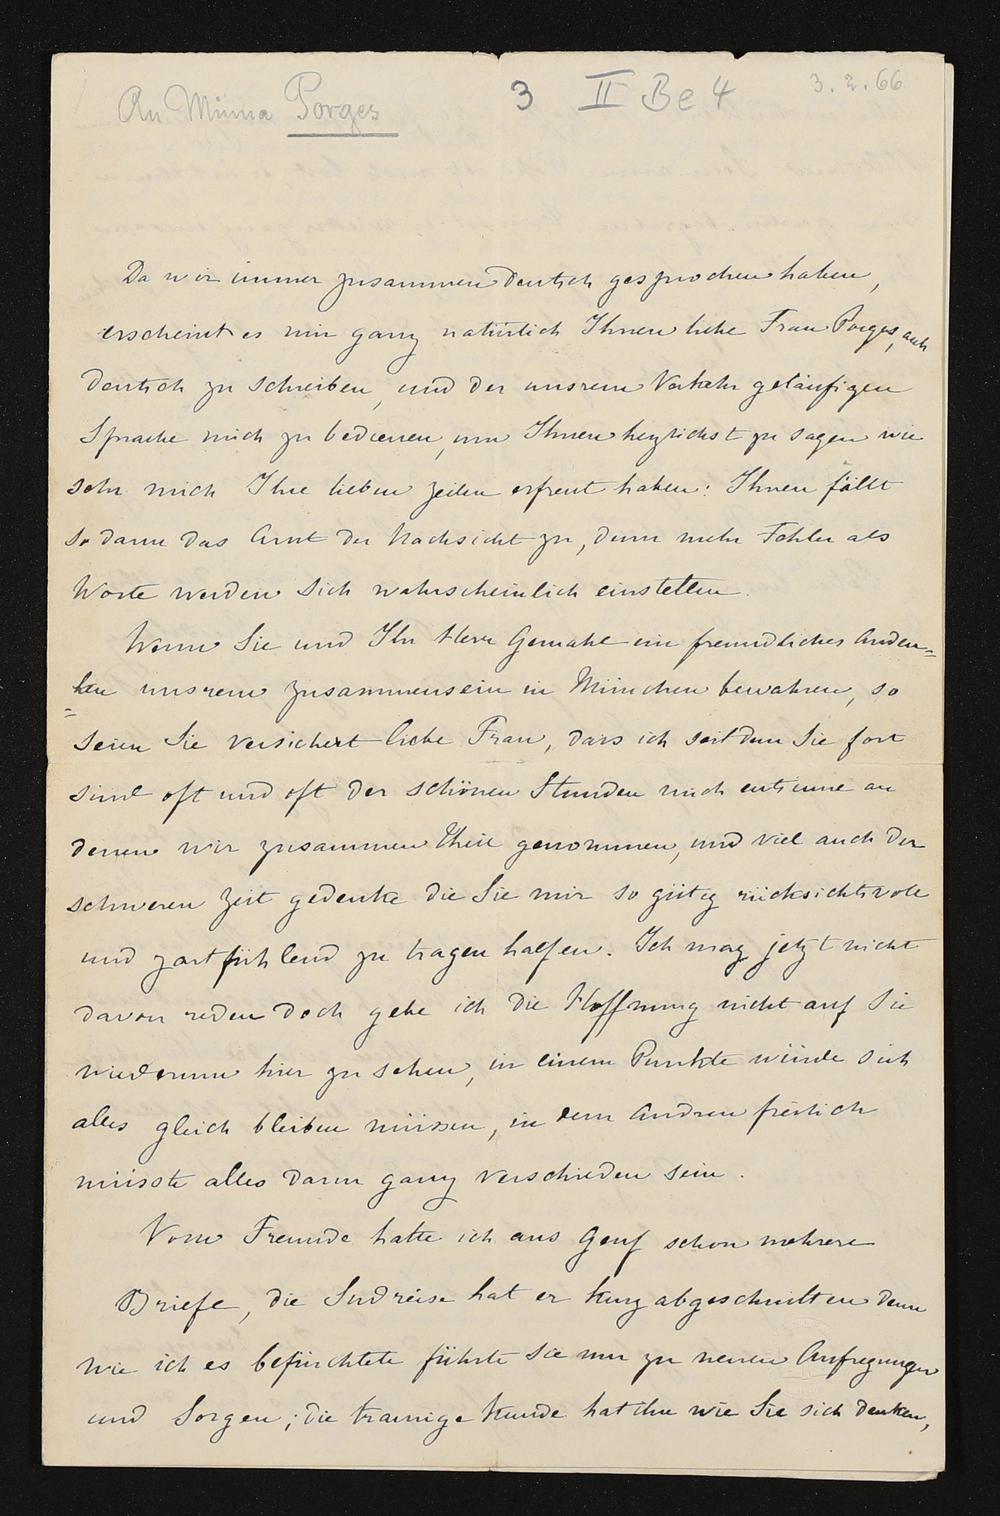 An Mimna Porges
3 II Be 4
3.2.66
Da wir immer zusammen deutsch gesprochen haben,
erscheint es mir ganz natürlich Ihnen liebe Frau Porges, auch
deutsch zu schreiben, und der unsrem Verkehr geläufigen
Sprache mich zu bedienen, um Ihnen herzlichst zu sagen wie
sehr mich Ihre lieben Zeilen erfreut haben: Ihnen fällt
so dann das Amt der Nachsicht zu, denn mehr Fehler als
Worte werden sich wahrscheinlich einstellen.
Wenn Sie und Ihr Herr Gemahl ein freundliches Anden=
=ken unsrem Zusammensein in München bewahren, so
seien Sie versichert liebe Frau, dass ich seitdem Sie fort
sind oft und oft der schönen Stunden mich entsinne an
denen wir zusammen Theil genommen, und viel auch der
schweren Zeit gedenke die Sie mir so gütig rücksichtsvoll
und zartfühlend zu tragen halfen. Ich mag jetzt nicht
davon reden doch gebe ich die Hoffnung nicht auf Sie
wiederum hier zu sehen, in einem Punkte würde sich
alles gleich bleiben müssen, in dem andren freilich
müsste alles dann ganz verschieden sein.
Vom Freunde hatte ich aus Genf schon mehrere
Briefe, die Südreise hat er kurz abgeschnitten denn
wie ich es befürchtete führte sie nur zu neuen Aufregungen
und Sorgen; die traurige Kunde hat ihn wie Sie sich denken,